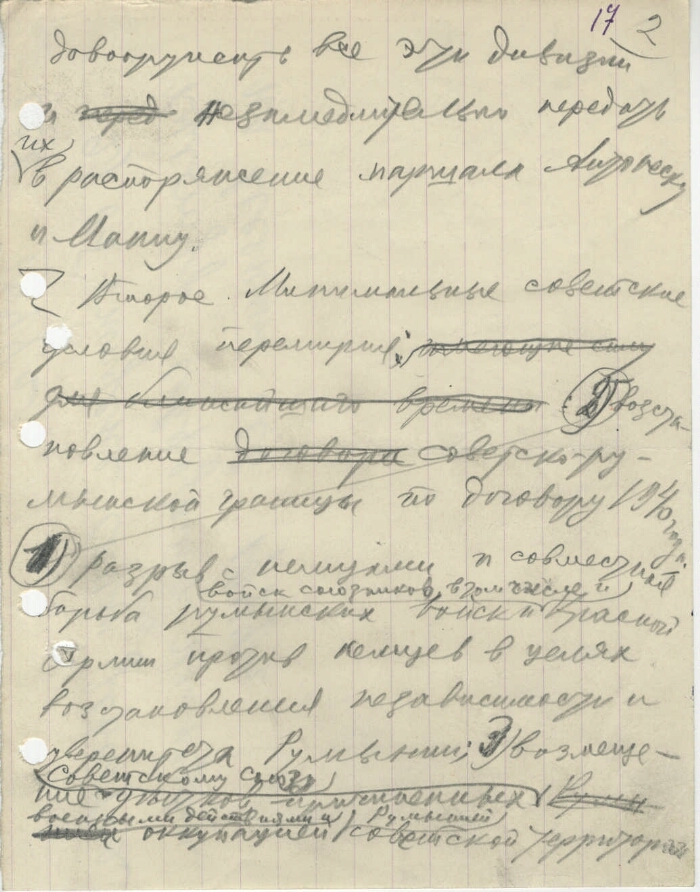 17 2
довооружить все эти дивизии
и перед незамедлительно передать
их
в распоряжение маршала Антонеску
и Маниу.
Второе. Минимальные советские
условия перемирия, имеющие силу
для ближайшего времени: 2) возста-
новление договора советско-ру-
мынской границы по договору 1940 года.
1) разрыв с немцами и совместная
войск союзников, в том числе и
борьба румынских войск и Красной
Армии против немцев в целях
возстановления независимости и
суверенитета Румынии; 3) возмеще-
Советскому Союзу
ние убытков причиненных Румы-
военными действиями и Румынией
оккупацией советской территории